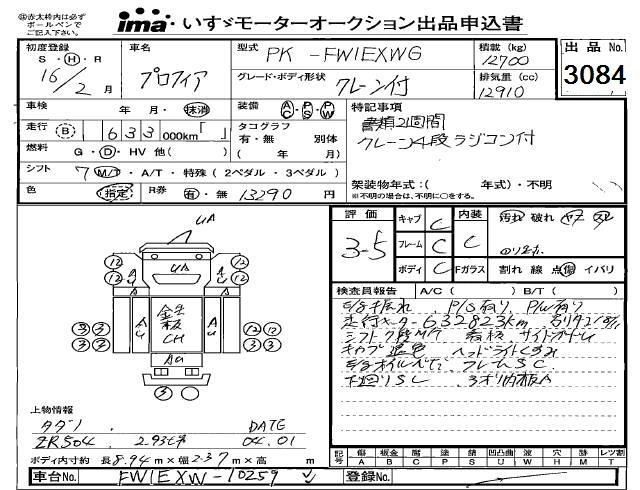 ㊟赤太枠内は必ず
ボールペンで
ご記入下さい。
ima いすゞモーターオークション出品申込書
初度登録 車名 型式 PK-FW1EXWG 積載(kg) 12700 出品No. 3084
S・H・R 16/2月 プロフィア グレード・ボディ形状 クレーン付 排気量(cc) 12910
車検 年 月・抹消 装備 AC PS PW 特記事項
書類2週間
クレーン4段ラジコン付
走行 (B) 633 000km「 」 タコグラフ 有・無 別体 ( 年 月)
燃料 G・D・HV 他( )
シフト 7 M/T・A/T・特殊(2ペダル・3ペダル) 架装物年式:( 年式)・不明
※不明の場合は、不明に○をする。
色 (指定) R券 有・無 13290円
評価 3-5 キャブ C 内装 C 汚れ 破れ ヤケ スレ
フレーム C
ボディ C Fガラス 割れ 線 点 傷 イバリ
検査員報告 A/C( ) B/T( )
P/S有り P/W有り
走行メーター632823km
シフト7段M/T 看板 サイドガード
キャブ退色 ヘッドライトくすみ
フレームSC
下廻りSC
UA
12 12
UA
A U
A U
金 板 CH
AU
3 3 12 12
3 3 12 12
AU
3
上物情報
タダノ DATE
ZR504 2.93t吊 04.01
ボディ内寸約 長8.94m×幅2.37m×高 m
記号 傷 板金 腐 塗 錆 凹 凸曲 波 穴 跡 レツ割
A B C P S U W H M T
車台No. FW1EXW-10259 登録No.